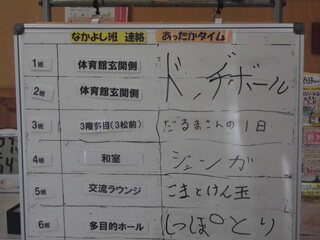 なかよし班 連絡 あったかタイム
1班 体育館玄関側 ドッヂボール
2班 体育館玄関側
3班 3階多目(3松前) だるまさんの1日
4班 和室 ジェンガ
5班 交流ラウンジ こまとけん玉
6班 多目的ホール しっぽとり